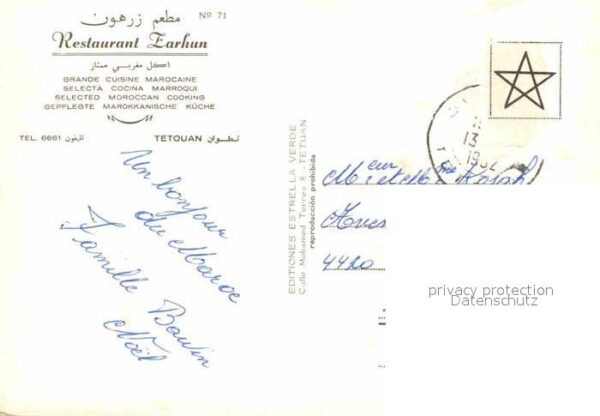 مطعم زرهون
Nº 71
Restaurant Zarhun
اكل مغربي ممتاز
GRANDE CUISINE MAROCAINE
SELECTA COCINA MARROQUI
SELECTED MOROCCAN COOKING
GEPFLEGTE MAROKKANISCHE KÜCHE
TEL. 6661 تلفون
TETOUAN تطوان
Un bonjour
du Maroc
Famille Boulin
Noël
EDITIONES ESTRELLA VERDE
Calle Mohamed Torres 8 - TETUAN
reproducción prohibida
Mieur et Mme
4420
privacy protection
Datenschutz